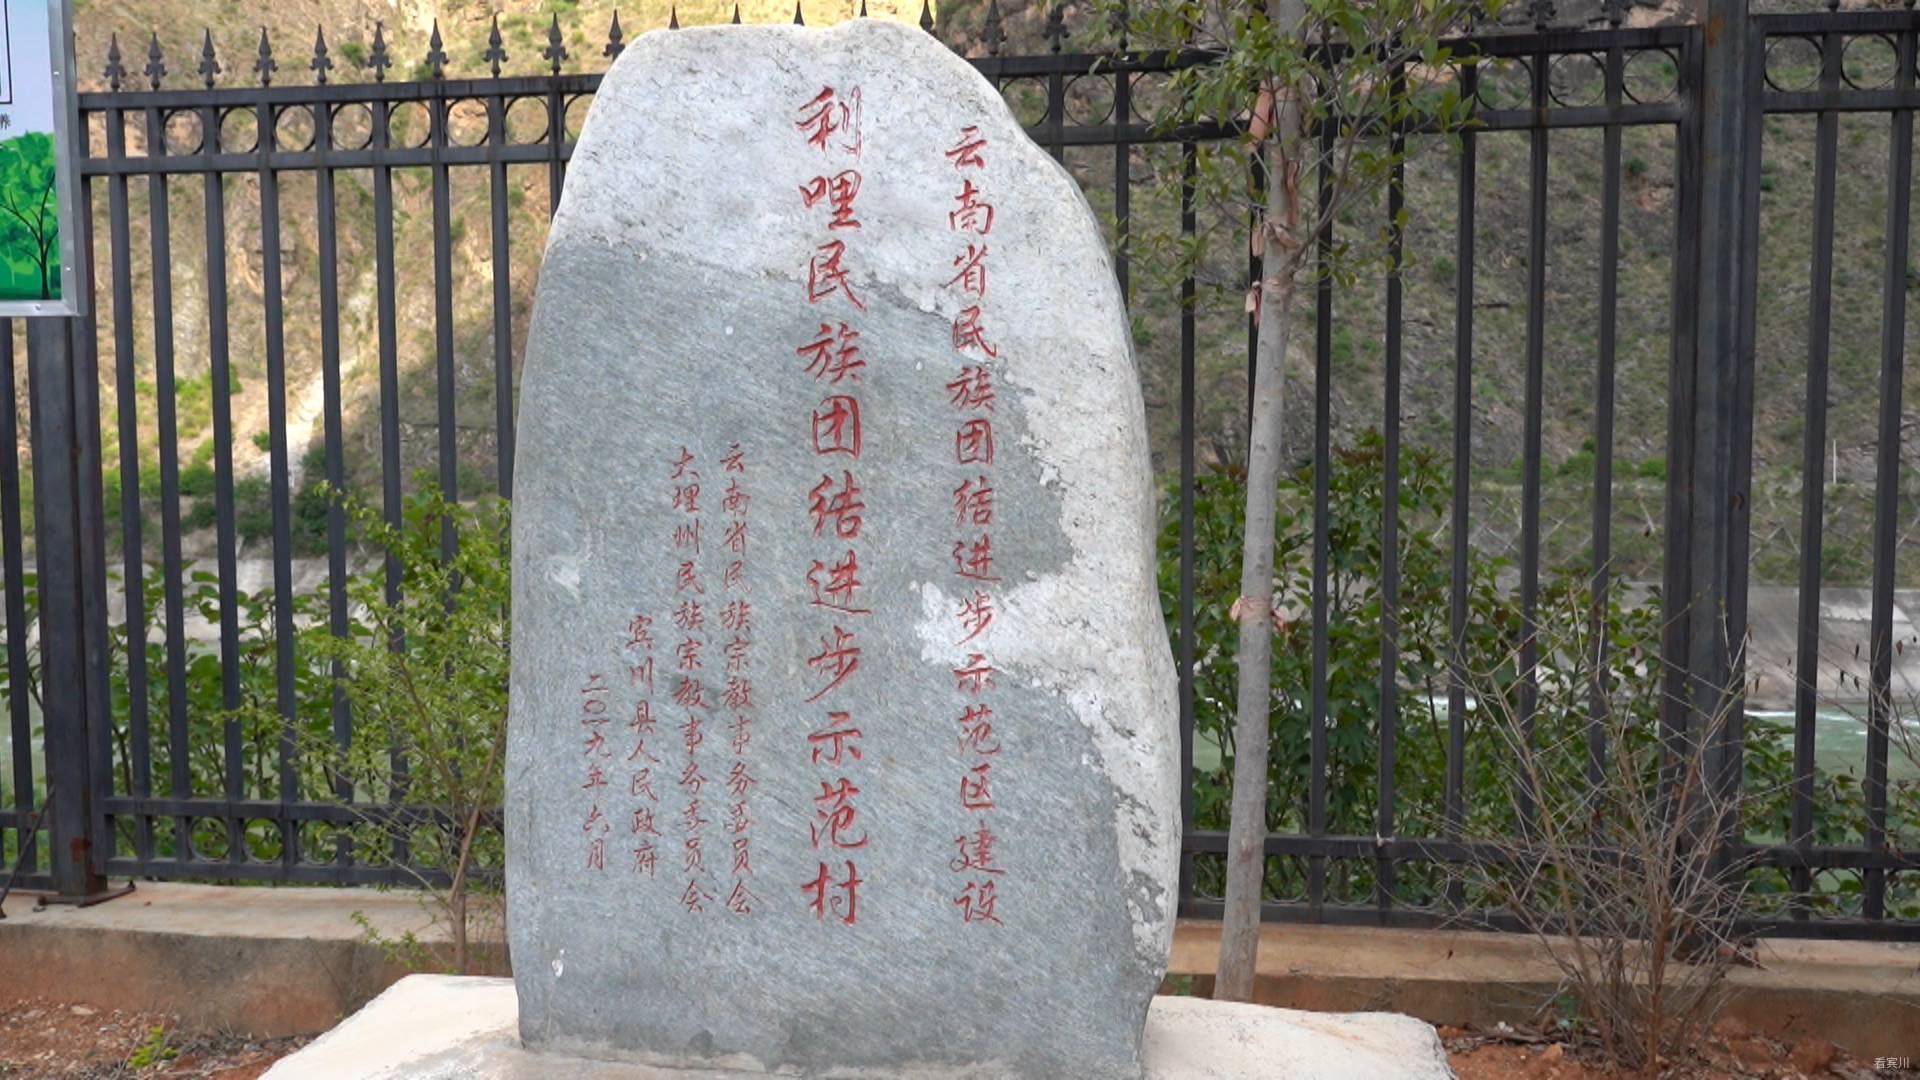 云南省民族团结进步示范区建设
利哩民族团结进步示范村
云南省民族宗教事务委员会
大理州民族宗教事务委员会
宾川县人民政府
二〇一九年六月
养
看宾川